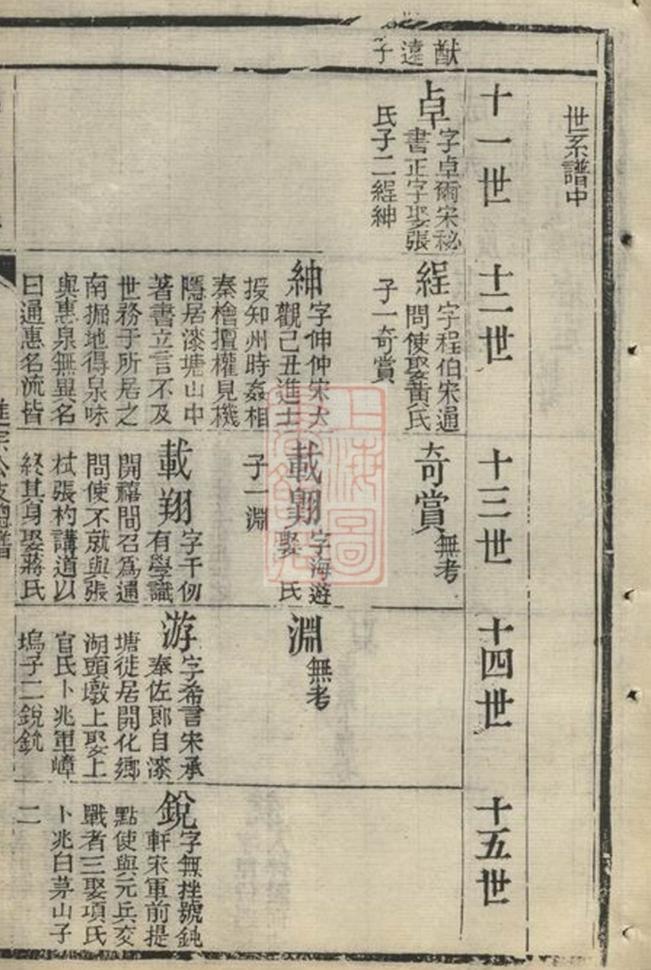 世系譜中
十一世
十二世
十三世
十四世
十五世
猷
達
子
卓
字卓爾宋秘
書正字娶張
氏子二綎紳
綎
字程伯宋通
問使娶黃氏
子一奇賞
奇賞
無考
紳
字伸仲宋大
觀己丑進士
授知州時姦相
秦檜擅權見機
隱居漆塘山中
著書立言不及
世務于所居之
南掘地得泉味
與惠泉無異名
曰通惠名流皆
載翺
字海遊
娶 氏
子一淵
淵
無考
載翔
字千仞
有學識
開禧間召爲通
問使不就與張
栻張杓講道以
終其身娶蔣氏
游
字希言宋承
奉佐郎自漆
塘徙居開化鄉
湖頭墩上娶上
官氏卜兆軍嶂
塢子二銳銃
銳
字無挫號鈍
軒宋軍前提
點使與元兵交
戰者三娶項氏
卜兆白茅山子
二